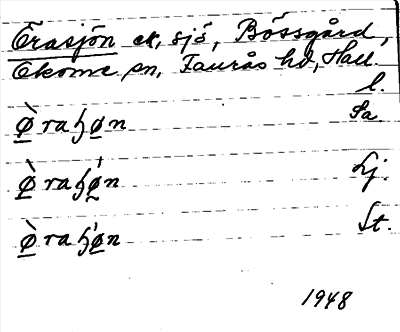 Örasjön ek, sjö, Bössgård,
Okome sn, Faurås hd, Hall.
l.
ø̱̀raɧø̱n Sa.
ø̱̀raɧǿ̱n Lj.
ø̱̀raɧǿ̱n St.
1948